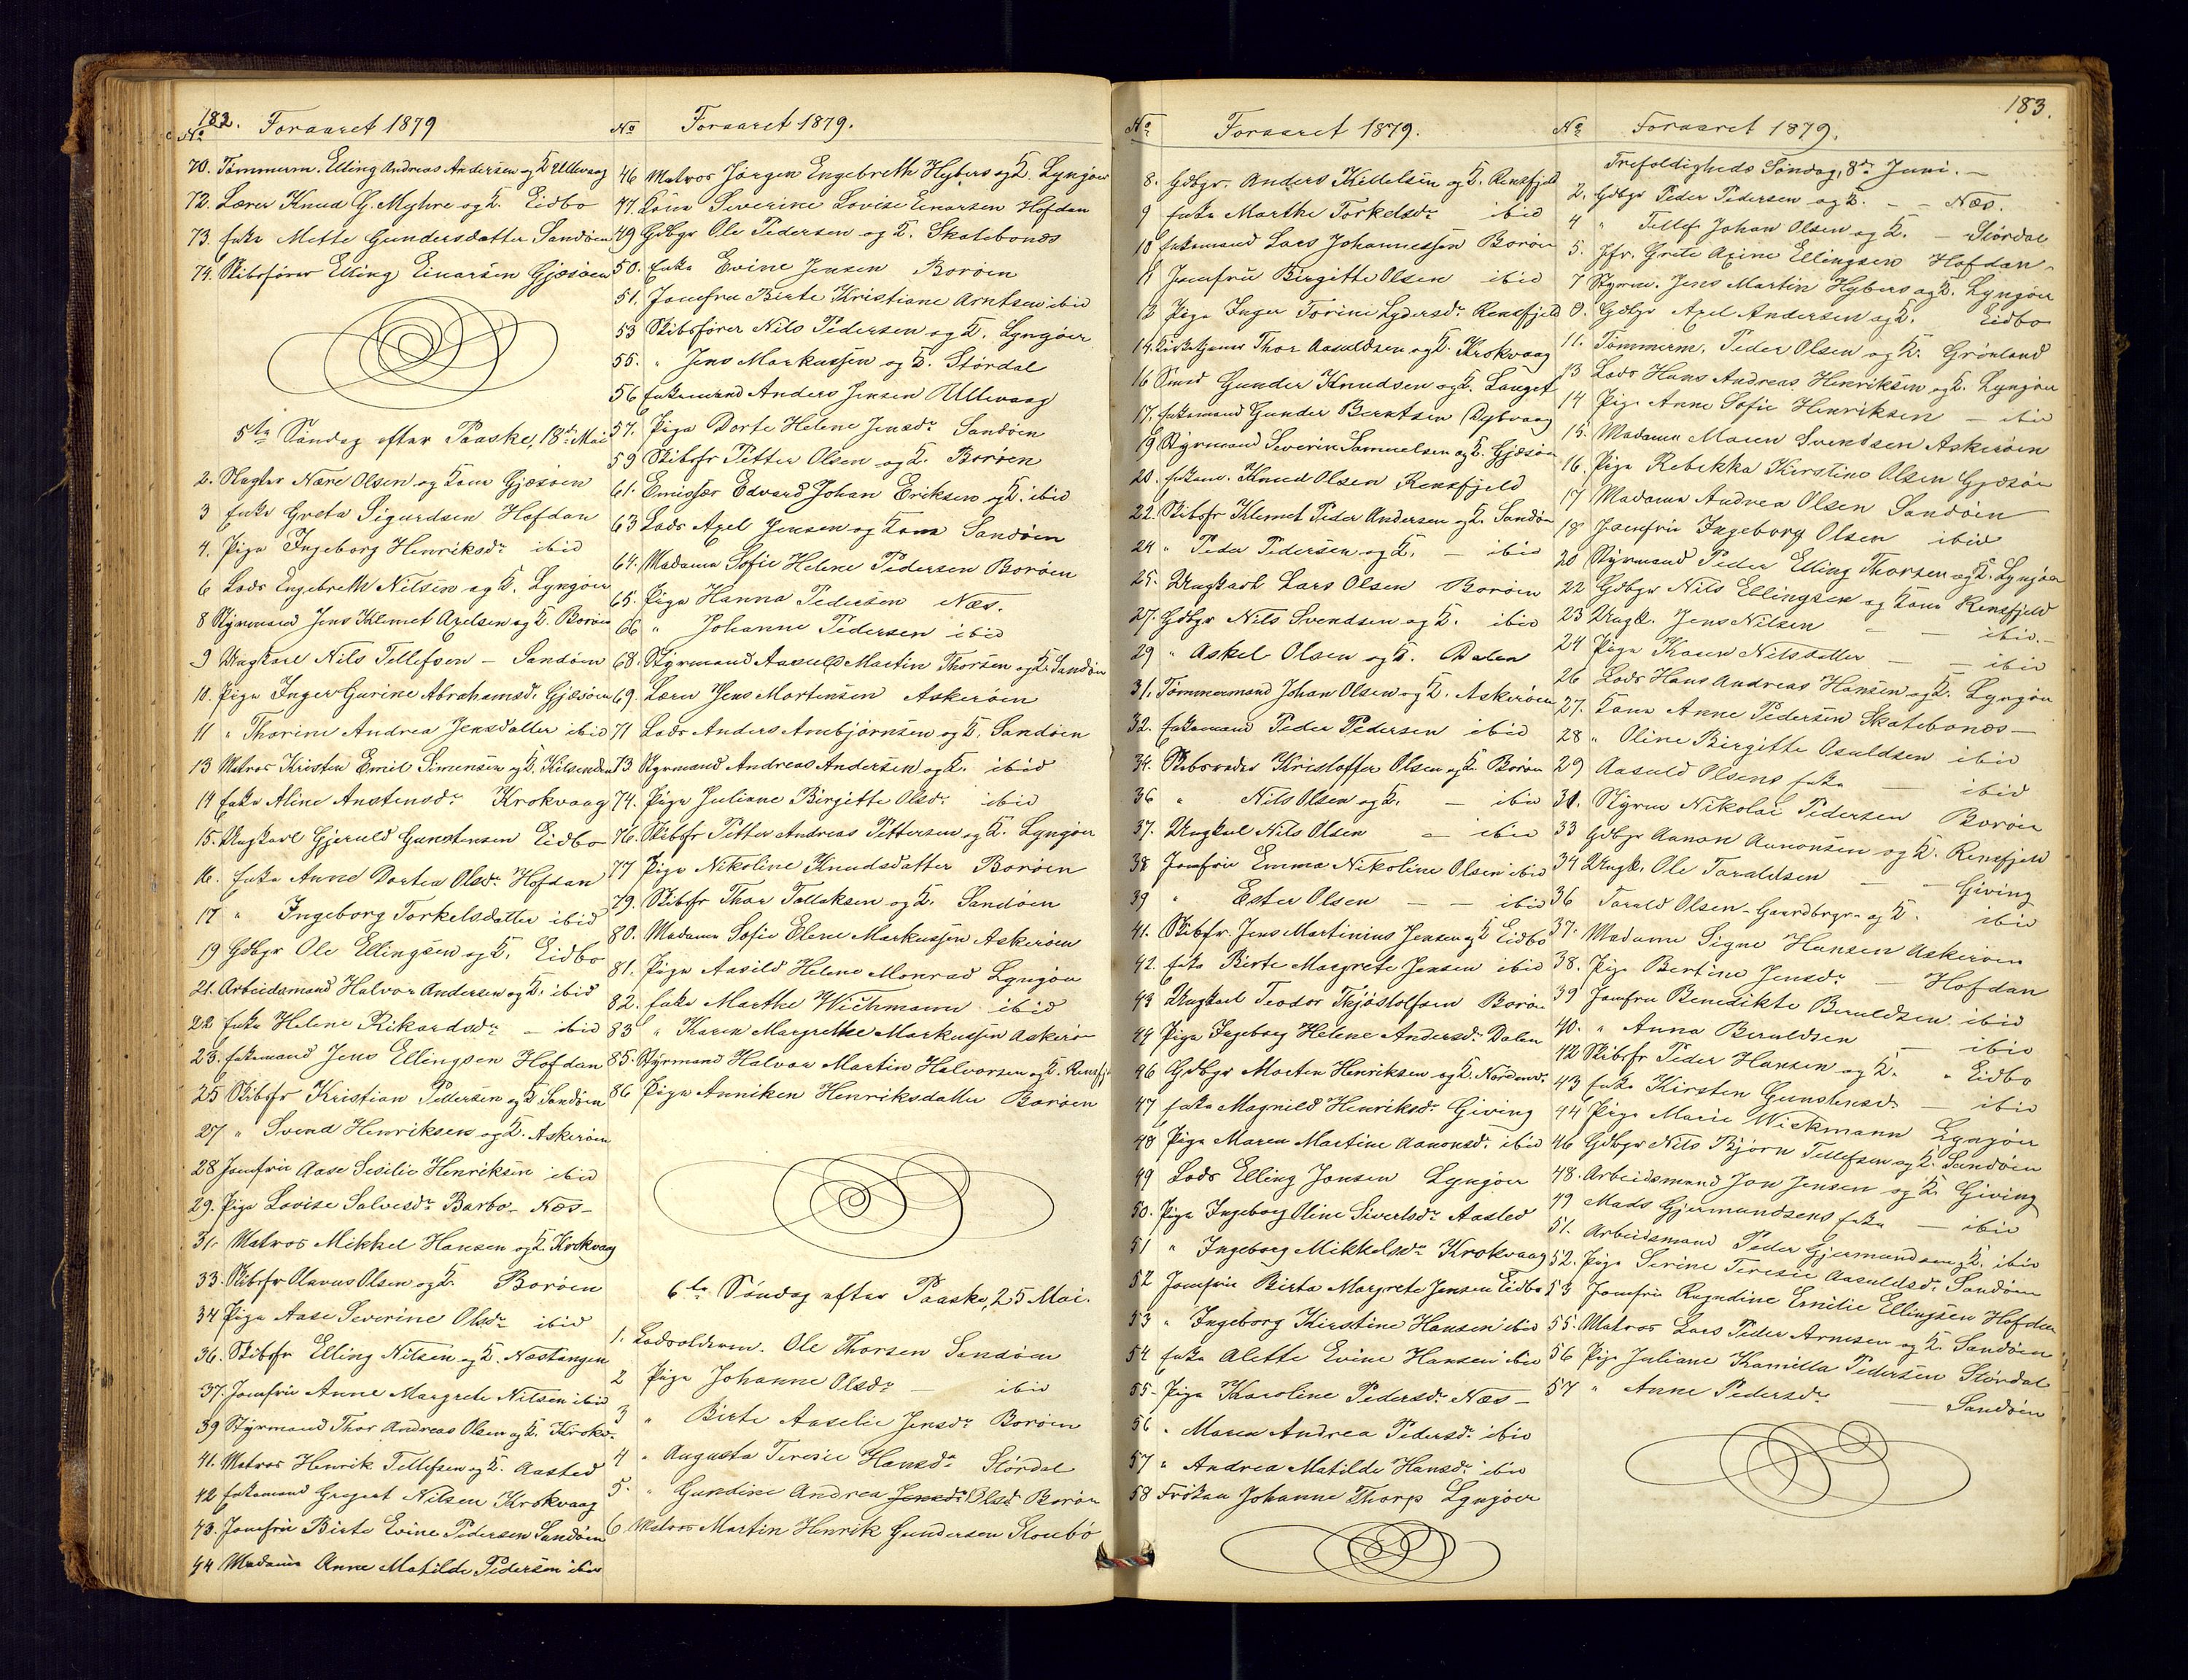 182.
No Foraaret 1879
70. Tømmerm. Elling Andreas Andersen og K. Ullevaag
72. Lærer Knud G. Myhre og K. Eidbo
73. Enke Mette Gundersdatter Sandøen
74. Skibsfører Elling Einarsen Gjæsøen
5te Søndag efter Paaske, 18de Mai
2. Slagter Nære Olsen og Kone Gjæsøen
3 Enke Greta Sigurdsen Hofdan
4. Pige Ingeborg Henriksdr ibid
6 Lods Engebreth Nilsen og K. Lyngøer
8 Styrmand Jens Klemet Axelsen og K. Borøen
9 Ungkarl Nils Tellefsen — Sandøen
10. Pige Inger Gurine Abrahamsd. Gjæsøen
11 " Thorine Andrea Jensdatter ibid
13 Matros Kristen Emil Simensen og K. Kilsenden
14 Enke Aline Anstensdr Krokvaag
15. Ungkarl Gjeruld Gunstensen Eidbo
16. Enke Anne Dortea Olsdr Hofdan
17 " Ingeborg Torkelsdatter ibid
19 Gdbgr Ole Ellingsen og K. Eidbo
21. Arbeidsmand Halvor Andersen og K. ibid
22 Enke Helene Rikardsdr — ibid
23. Enkemand Jens Ellingsen Hofdan
25 Skibsfr Kristian Pettersen og K Sandøen
27 " Svend Henriksen og K. Askerøen
28 Jomfru Aase Sesilie Henriksen ibid
29. Pige Lovise Salvesdr Barbo — Næs —
31. Matros Mikkel Hansen og K. Krokvaag
33. Skibsfr Olavus Olsen og K. Borøen
34 Pige Aase Severine Olsdr ibid
36. Skibsfr Elling Nilsen og K. Næstangen
37. Jomfru Anne Margrete Nilsen ibid
39 Styrmand Thor Andreas Olsen og K. Krokv.
41. Matros Henrik Tellefsen og K. Aasted
42 Enkemand Gregert Nilsen Krokvaag
43. Jomfru Birte Evine Pedersen Sandøen
44 Madame Anne Matilde Pedersen ibid
No Foraaret 1879.
46 Matros Jørgen Engebreth Hybers og K. Lyngøer
47. Kone Severine Lovise Einarsen Hofdan
49 Gdbgr Ole Pedersen og K. Skatebonæs
50. Enke Evine Jensen Borøen
51. Jomfru Birte Kristiane Arntsen ibid
53 Skibsfører Nils Pedersen og K. Lyngøer
55. " Jens Markussen og K. Stördal
56 Enkemand Anders Jensen Ullevaag
57. Pige Dorte Helene Jensdr Sandøen
59 Skibsfr Petter Olsen og K. Borøen
61. Emisær Edvard Johan Eriksen og K. ibid
63 Lods Axel Jensen og Kone Sandøen
64. Madame Sofie Helene Pedersen Borøen
65. Pige Hanna Pedersen Næs.
66 " Johanne Pedersen ibid
68. Styrmand Aasuld Martin Thorsen og K. Sandøen
69. Lærer Jens Mortensen Askerøen
71 Lods Anders Arnbjørnsen og K. Sandøen
73 Styrmand Andreas Andersen og K. ibid
74. Pige Juliane Birgitte Olsdr ibid
76. Skibsfr Petter Andreas Pettersen og K. Lyngøer
77 Pige Nikoline Knudsdatter Borøen
79. Skibsfr Thor Tollaksen og K. Sandøen
80. Madame Sofie Elene Markussen Askerøen
81. Pige Aasild Helene Monrad Lyngøer
82. Enke Marthe Wichmann ibid
83 " Karen Margrethe Markussen Askerøen
85. Styrmand Halvor Martin Halvorsen og K. Rensfj.
86 Pige Anniken Henriksdatter Borøen
6te Søndag efter Paaske, 25 Mai.
1. Lodsolderm. Ole Thorsen Sandøen
2 Pige Johanne Olsdr ibid
3 " Birte Aaselie Jensdr Borøen
4 " Augusta Teresie Hansdr Stördal
5. " Gundine Andrea Jensdr Olsd Borøen
6 Matros Martin Henrik Gundersen Stoubö
No Foraaret 1879.
8. Gdbgr. Anders Kittelsen og K. Rensfjeld
9 Enke Marthe Torkelsdr ibid
10 Enkemand Lars Johannessen Borøen
11 Jomfru Birgitte Olsen ibid
12 Pige Inger Torine Lydersdr Rensfjeld
14. Kirketjener Thor Aasuldsen og K. Krokvaag
16 Smed Gunder Knudsen og K. Langst
17. Enkemand Gunder Berntsen Dybvaag
19 Styrmand Severin Samuelsen og K. Gjæsøen
20. Enkem. Knud Olsen Rensfjeld
22. Skibsfr Klemet Peder Andersen og K. Sandøen
24 " Peder Pedersen og K. — ibid
25. Ungkarl Lars Olsen Borøen
27. Gdbgr Nils Svendsen og K. ibid
29 " Askel Olsen og K. Dalen
31. Tømmermand Johan Olsen og K. Askerøen
32. Enkemand Peder Pedersen ibid
34. Skibsreder Kristoffer Olsen og K. Borøen
36 " Nils Olsen og K. — ibid
37. Ungkarl Nils Olsen — ibid
38 Jomfru Emma Nikoline Olsen ibid
39 " Ester Olsen — — ibid
41. Skibsfr. Jens Martinius Jensen og K Eidbo
42. Enke Birte Margrete Jensen ibid
43 Ungkarl Teodor Thjøstolfsen Borøen
44 Pige Ingeborg Helene Andersdr Dalen
46 Gdbgr Morten Henriksen og K. Nordenv.
47 Enke Magnild Henriksdr Giving
48 Pige Maren Martine Aanonsdr ibid
49 Lods Elling Jonsen Lyngøer
50. Pige Ingeborg Oline Sivertsdr Aasted
51 " Ingeborg Mikkelsdr Krokvaag
52 Jomfru Birte Margrete Jensen Eidbo
53 " Ingeborg Kirstine Hansen ibid
54 Enke Alette Evine Hansen ibid
55 - Pige Karoline Pedersdr Næs —
56 " Maren Andrea Pedersdr ibid
57 " Andrea Matilde Hansdr ibid
58 Frøken Johanne Thorp Lyngøer
183.
No Foraaret 1879.
Trefoldigheds Søndag, 8de Juni. —
2. Gdbgr Peder Pedersen og K. — — Næs.
4 " Tellef Johan Olsen og K. — Stördal
5. Jfr. Grete Axine Ellingsen Hofdan
7 Styrm. Jens Martin Hybers og K. Lyngøer
9. Gdbgr Axel Andersen og K. Eidbo
11. Tømmerm. Peder Olsen og K. Grönland
13 Lods Hans Andreas Henriksen og K. Lyngøer
14 Pige Anne Sofie Henriksen — ibid
15. Madame Maren Svendsen Askerøen
16. Pige Rebekka Kirstine Olsen Gjæsøen
17 Madame Andrea Olsen Sandøen
18 Jomfru Ingeborg Olsen ibid
20 Styrmand Peder Elling Thorsen og K. Lyngøer
22 Gdbgr Nils Ellingsen og Kone Rensfjeld
23 Ungk. Jens Nilsen — — ibid. —
24 Pige Karen Nilsdatter — — ibid
26 Lods Hans Andreas Hansen og K. Lyngøer
27. Kone Anne Pedersen Skatebonæs —
28 " Oline Birgitte Osuldsen ibid
29 Aasuld Olsens Enke — ibid
31. Styrm Nikolai Pedersen Borøen
33 Gdbgr Aanon Aanonsen og K. Rensfjeld
34 Ungk. Ole Taraldsen — — Giving
36 Tarald Olsen - Gaardbrgr - og K. ibid
37. Madame Signe Hansen Askerøen
38. Pige Bertine Jensdr — Hofdan
39 Jomfru Benedikte Beruldsen ibid
40. " Anna Beruldsen — ibid
42 Skibsfr Peder Hansen og K. " Eidbo
43 Enke Kirsten Gunstensd. — ibid
44 Pige Marie Wickmann Lyngøer
46 Gdbgr Nils Bjørn Tellefsen og K. Sandøen
48. Arbeidsmand Jon Jensen og K. Giving
49 Mads Gjermundsens Enke — ibid
51. Arbeidsmand Peder Gjermundsen og K. ibid
52. Pige Serine Teresie Aasuldsd. Sandøen
53 Jomfru Ragndine Emilie Ellingsen Hofdan
55. Matros Lars Peder Arnesen og K. Sandøen
56 Pige Juliane Kamilla Pedersen Stördal
57 " Anne Pedersdr — Sandøen